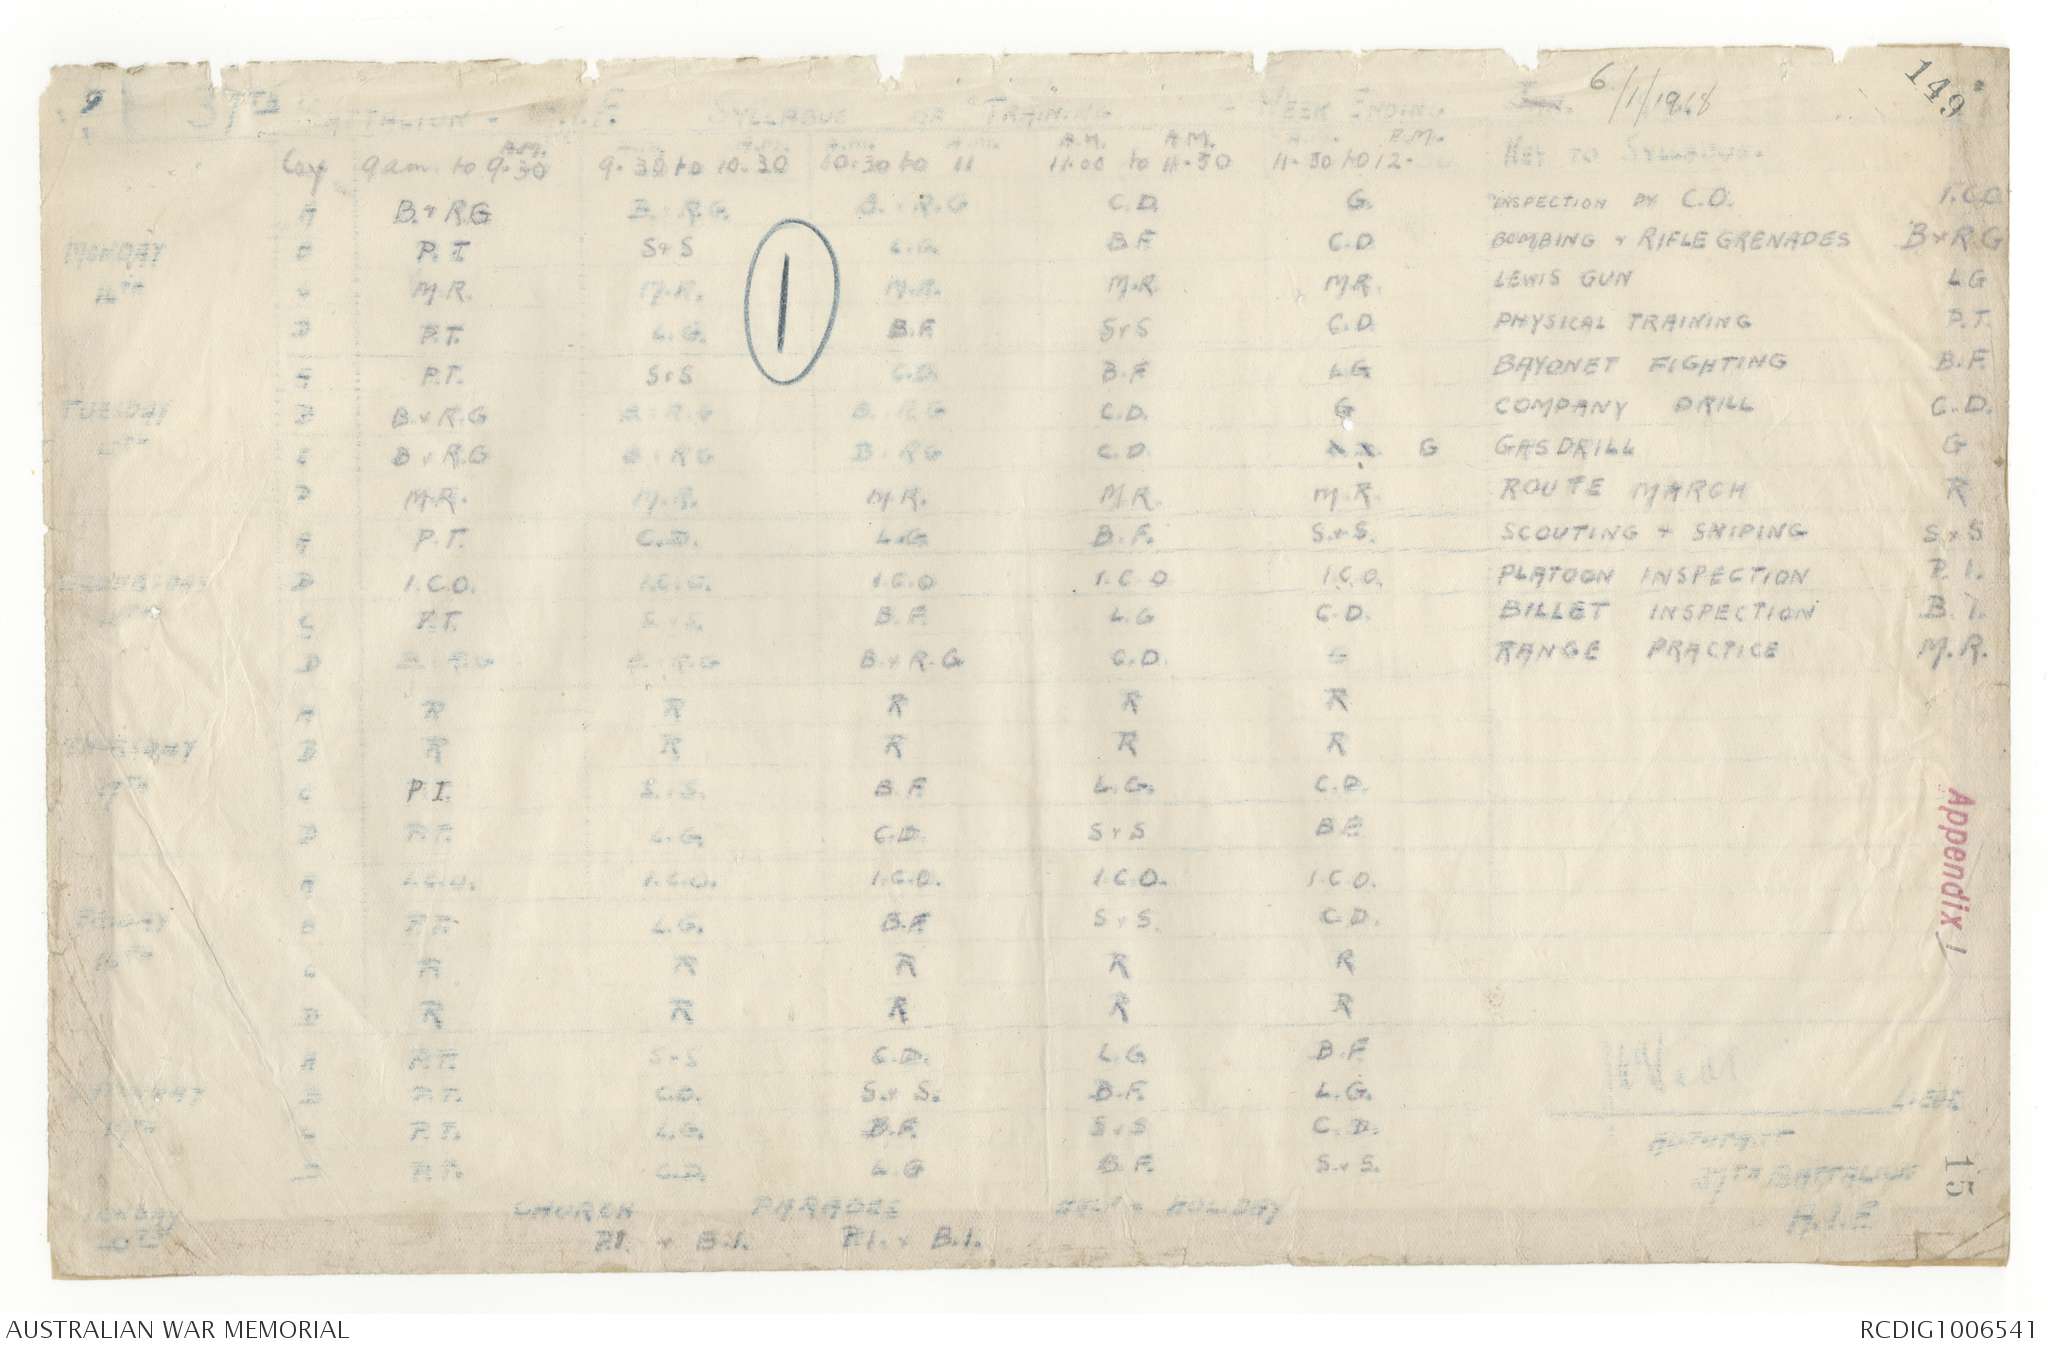 149
37TH BATTALION - A.I.F. SYLLABUS OR TRAINING - WEEK ENDING 6/1/1918
Coy 9am to 9.30 A.M. 9.30 to 10.30 A.M. 10.30 to 11 A.M. A.M. 11.00 to 11.30 A.M. 11.30 to 12.30 P.M. KEY TO SYLLABUS.
A B.+R.G B.+R.G. B.+R.G C.D. G. INSPECTION BY C.O. I.C.O
MONDAY B P.T S+S L.G. B.F. C.D BOMBING + RIFLE GRENADES B+R.G
14TH C M.R. M.R. M.R. M.R. M.R. LEWIS GUN LG
D P.T. L.G. B.F. S+S C.D PHYSICAL TRAINING P.T.
A P.T. S+S C.D. B.F. LG BAYONET FIGHTING B.F.
TUESDAY B B.+R.G B.+R.G B.+R.G C.D. G COMPANY DRILL C.D.
15TH C B+R.G B+RG B+RG C.D. G GAS DRILL G
D M.R. M.R. M.R. M.R. M.R. ROUTE MARCH R
A P.T. C.D. L.G B.F. S.+S. SCOUTING + SNIPING S+S
WEDNESDAY B I.C.O. I.C.O. I.C.O I.C.O I.C.O. PLATOON INSPECTION P.I.
16TH C P.T. S+S. B.F. L.G C.D. BILLET INSPECTION B.I.
D B.+R.G B.+R.G B.+R.G C.D. G RANGE PRACTICE M.R.
A R R R R R
THURSDAY B R R R R R
17TH C P.I. S.+S. B.F. L.G. C.D.
D P.T. L.G. C.D. S+S B.F.
A I.C.O. I.C.O. I.C.O. I.C.O. I.C.O.
FRIDAY B P.T. L.G. B.F. S+S. C.D.
18TH C R R R R R
D R R R R R
A P.T. S+S C.D. L.G B.F.
SATURDAY B P.T. C.D. S.+S. B.F. L.G.
19TH C P.T. L.G. B.F. S+S C.D.
D P.T. C.D. L.G B.F. S+S.
SUNDAY CHURCH PARADE HOLIDAY
20TH P.I. + B.I. P.I. + B.I.
1
Appendix 1
ADJUTANT
37TH BATTALION
A.I.F
15
AUSTRALIAN WAR MEMORIAL
RCDIG1006541